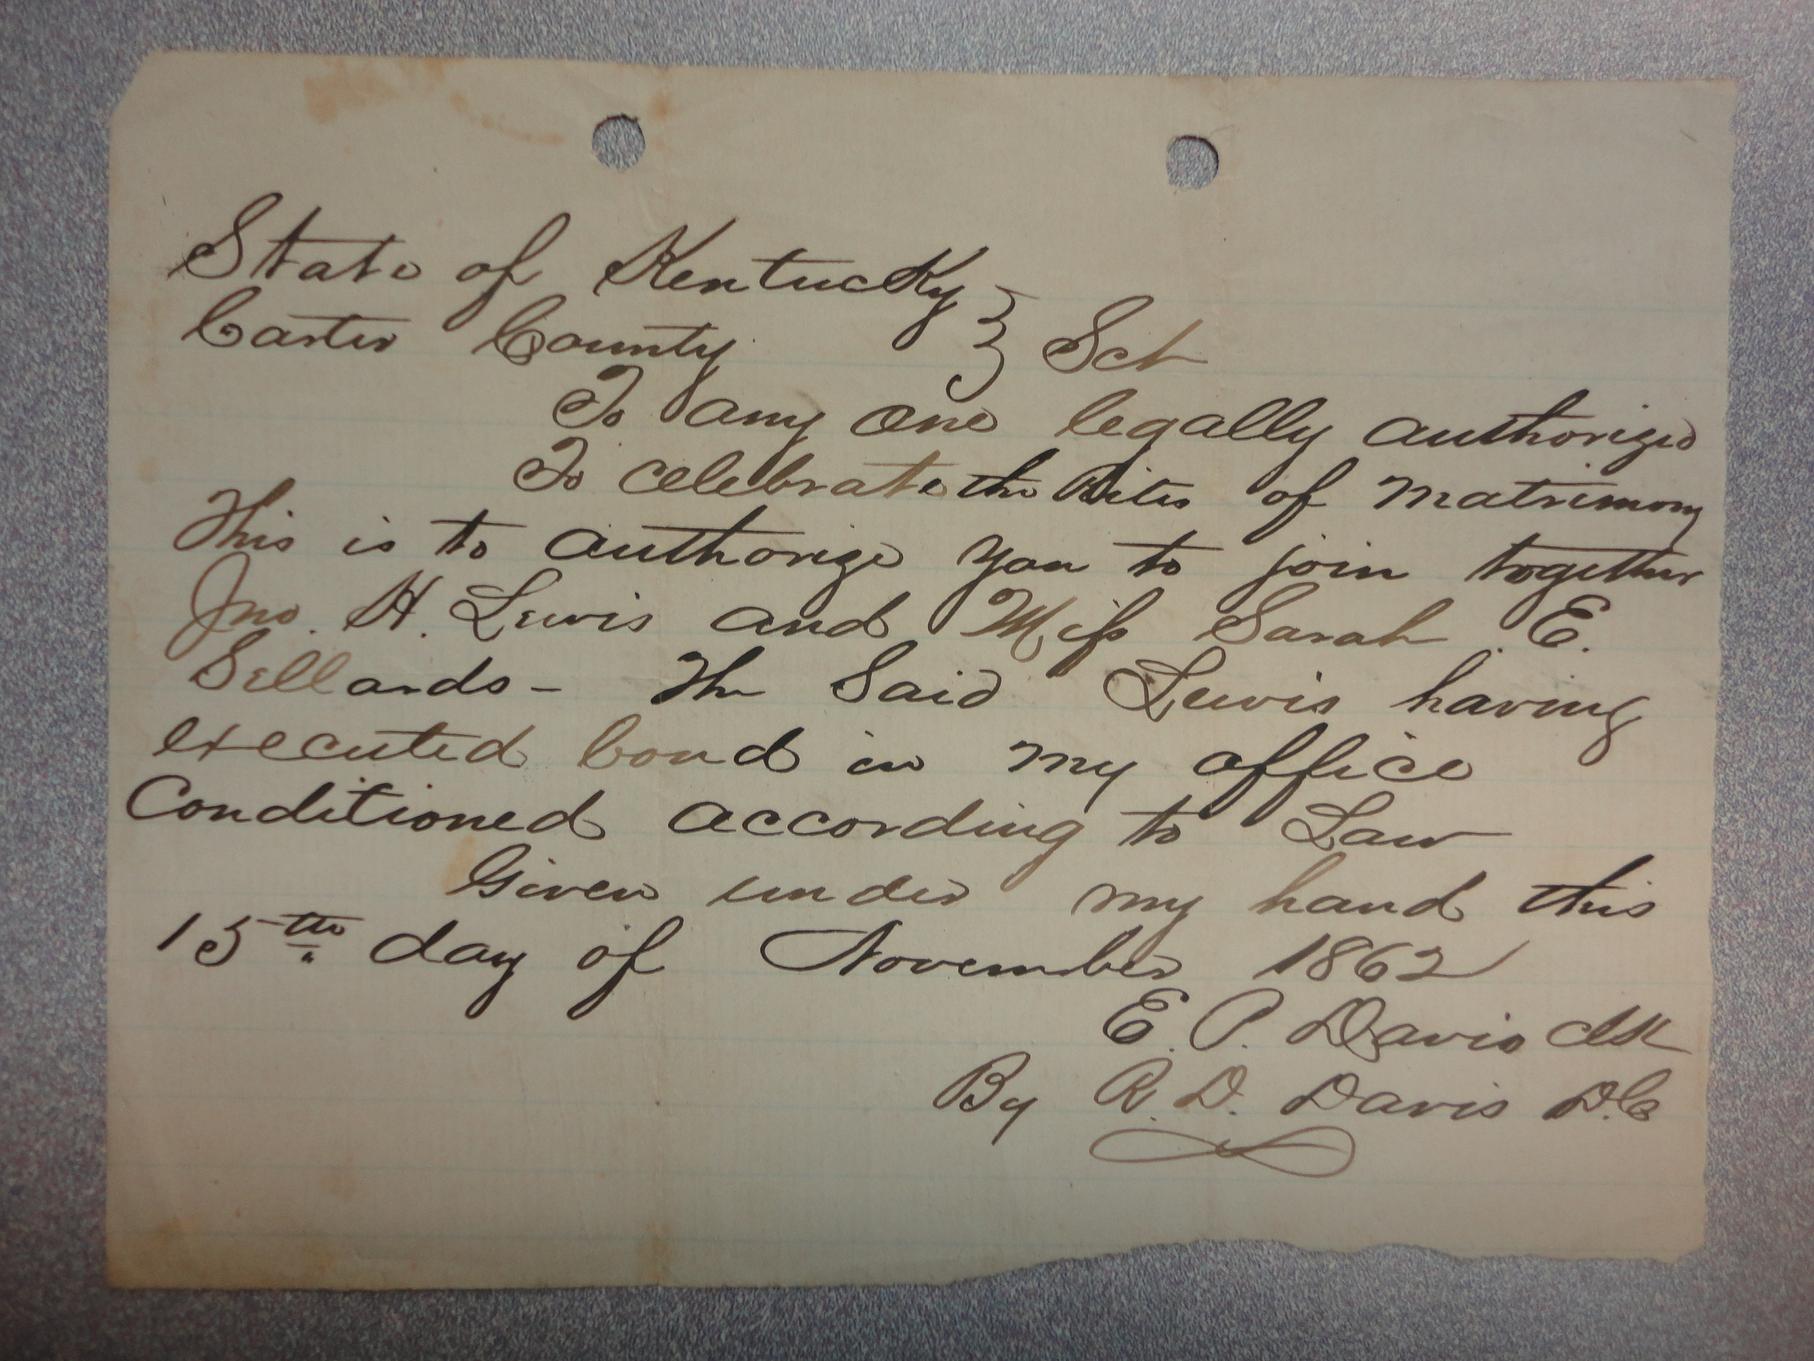 State of Kentucky }
Carter County } Sct
To any one legally authorized
To celebrate the Rites of Matrimony
This is to authorize you to join together
Jno. H. Lewis and Miss Sarah E.
Sellards - The Said Lewis having
executed bond in my office
Conditioned according to Law
Given under my hand this
15th day of November 1862
E. P. Davis Clk
By R. D. Davis D.C